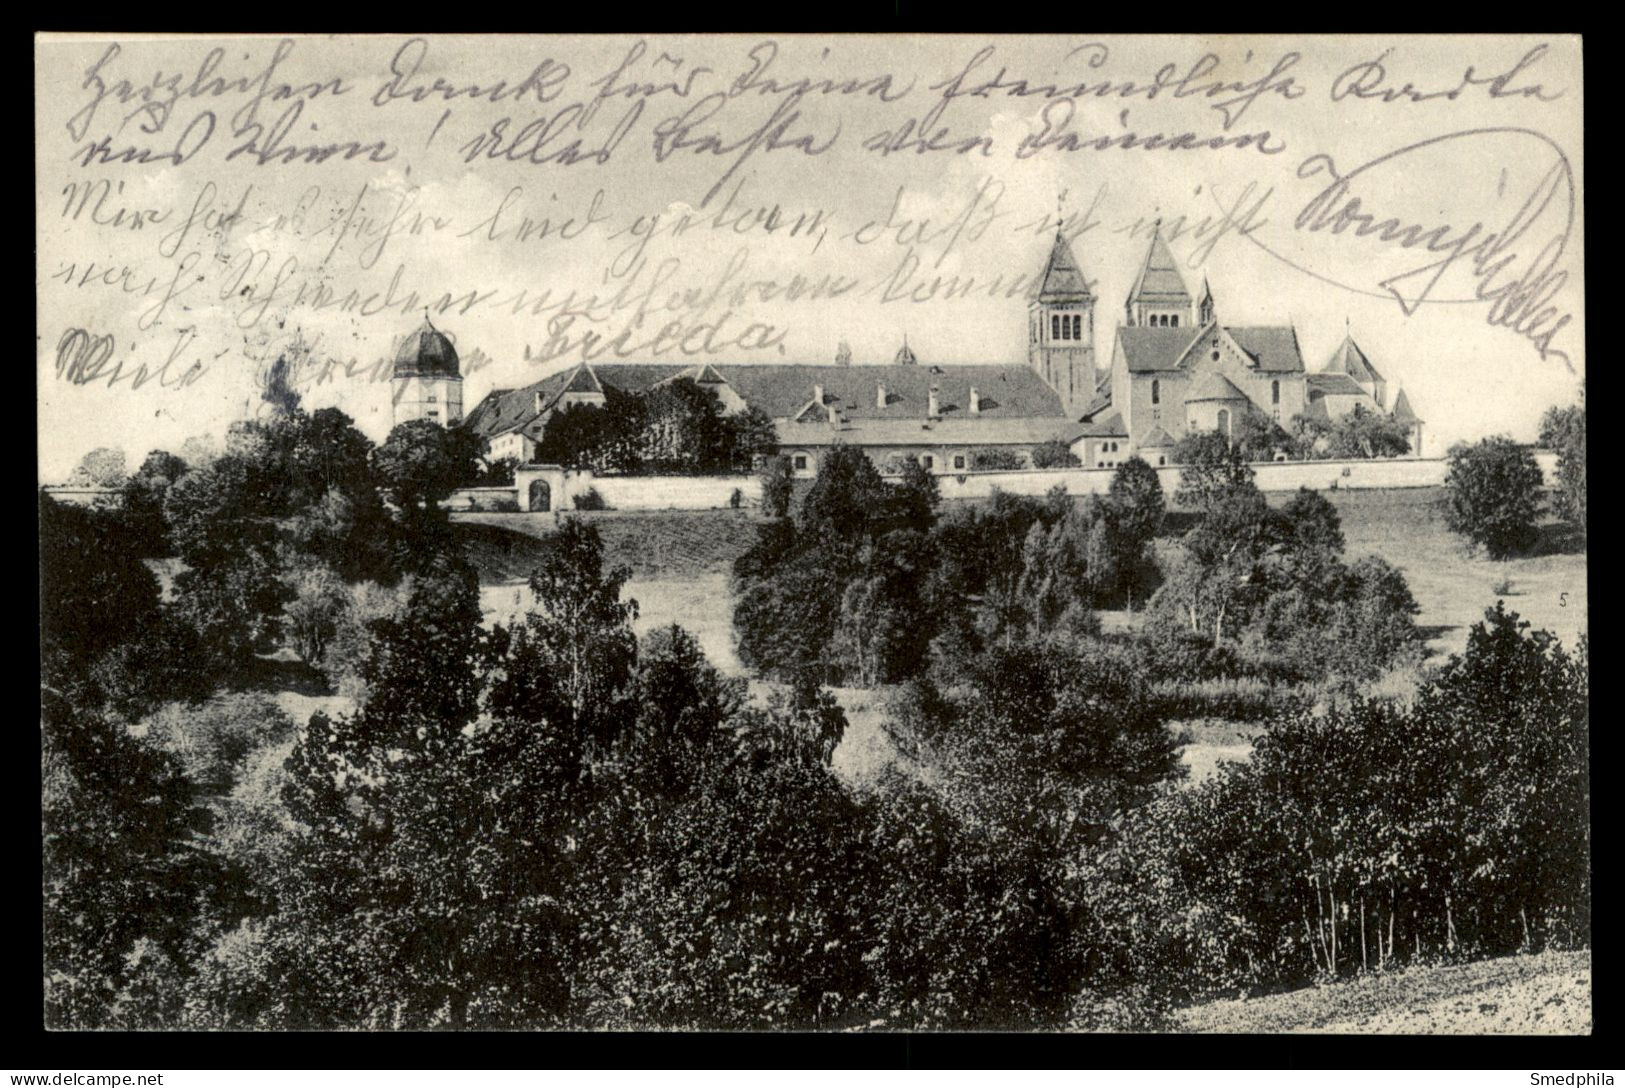 Herzlichen Dank für Deine freundliche Karte
aus Wien! Alles Beste von Deinem
Mir hat es sehr leid getan, daß ich nicht
nach Schweden mitfahren konnte
Viele Grüsse Frieda.
5
more images at delcampe.net
Smedphila